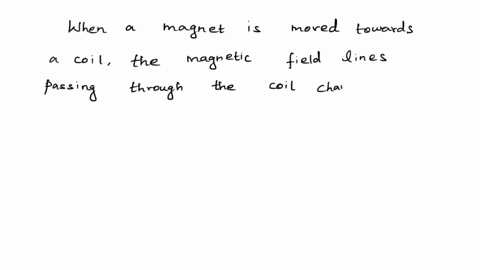 When a magnet is moved towards
a coil, the magnetic field lines
passing through the coil cha